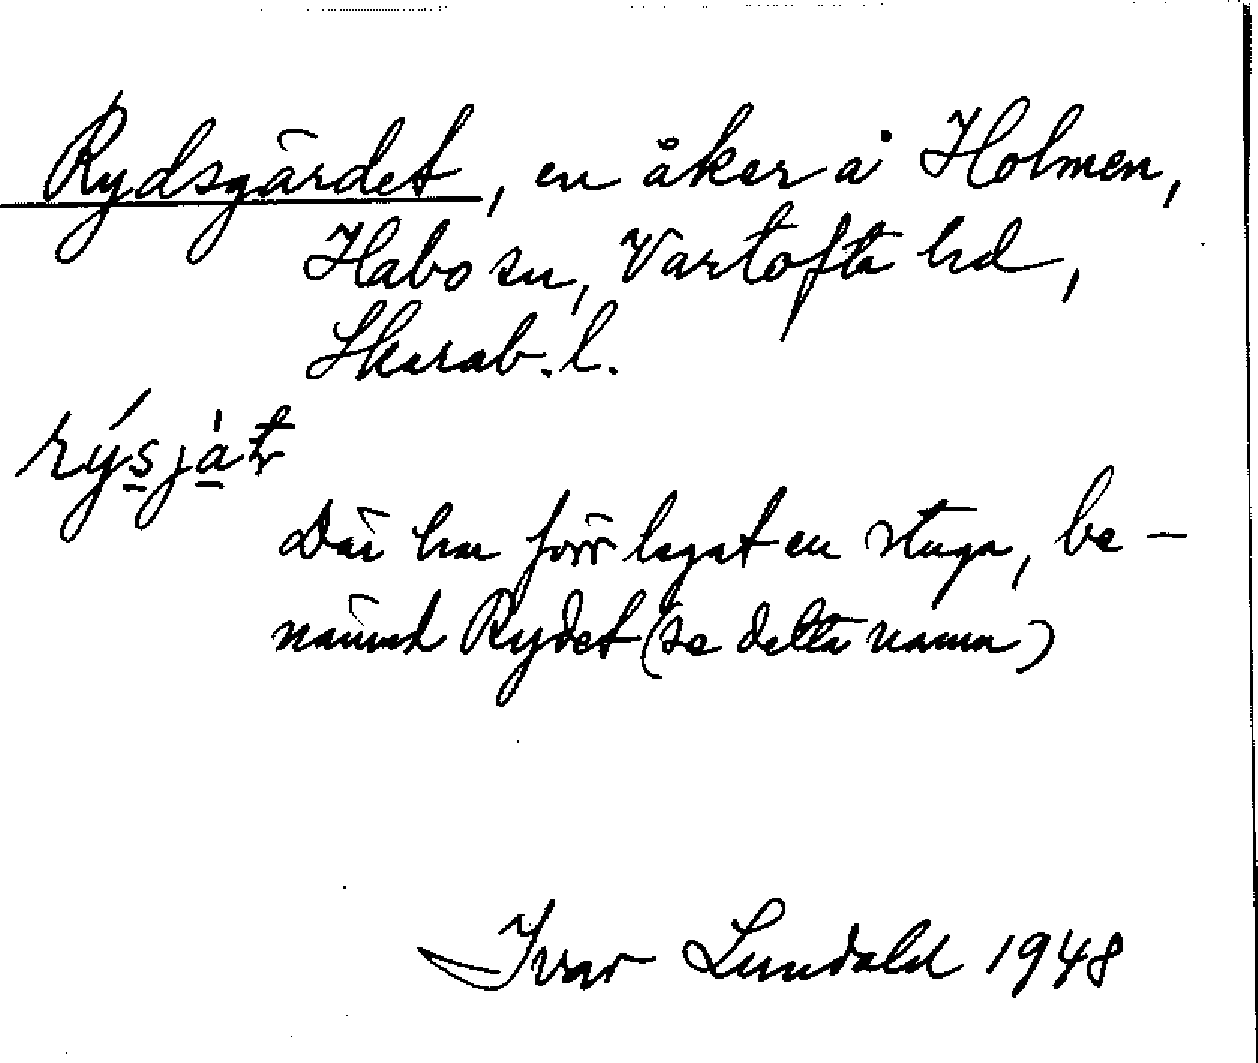 Rydsgärdet, en åker å Holmen,
Habo sn, Vartofta hd,
Skarab. l.
rýsjàt
Där har förr legat en stuga, be-
nämnd Rydet (se detta namn)
Ivar Lundahl 1948